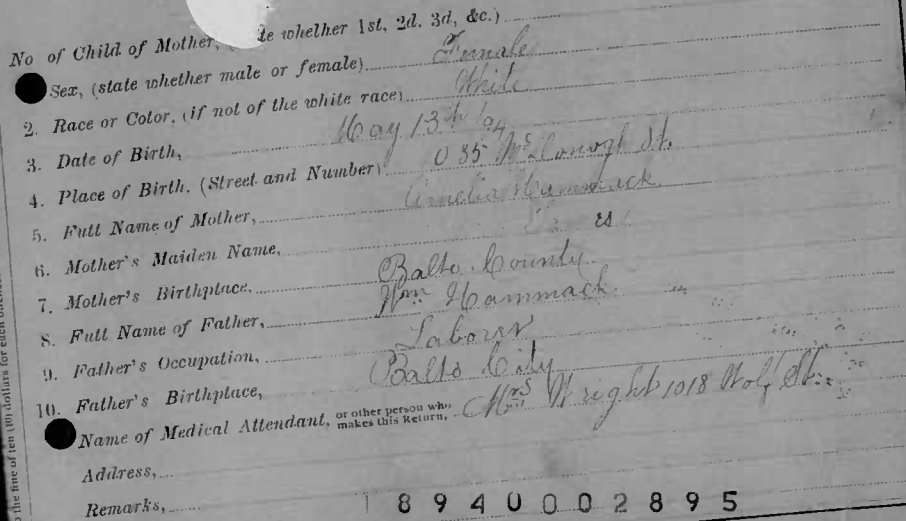 No of Child of Mother, te whether 1st, 2d. 3d, &c.)
Sex, (state whether male or female) Female
2. Race or Color, (if not of the white race) White
3. Date of Birth, May 13th /94
4. Place of Birth, (Street and Number) 035 McDonogh St.
5. Full Name of Mother, Amelia Hammack
6. Mother's Maiden Name, es
7. Mother's Birthplace, Balto County
8. Full Name of Father, Wm Hammack
9. Father's Occupation, Laborer
10. Father's Birthplace, Balto City
Name of Medical Attendant, or other person who makes this Return, Mrs Wright 1018 Wolf St.
Address,
Remarks,
18940002895
o the fine of ten (10) dollars for each offence